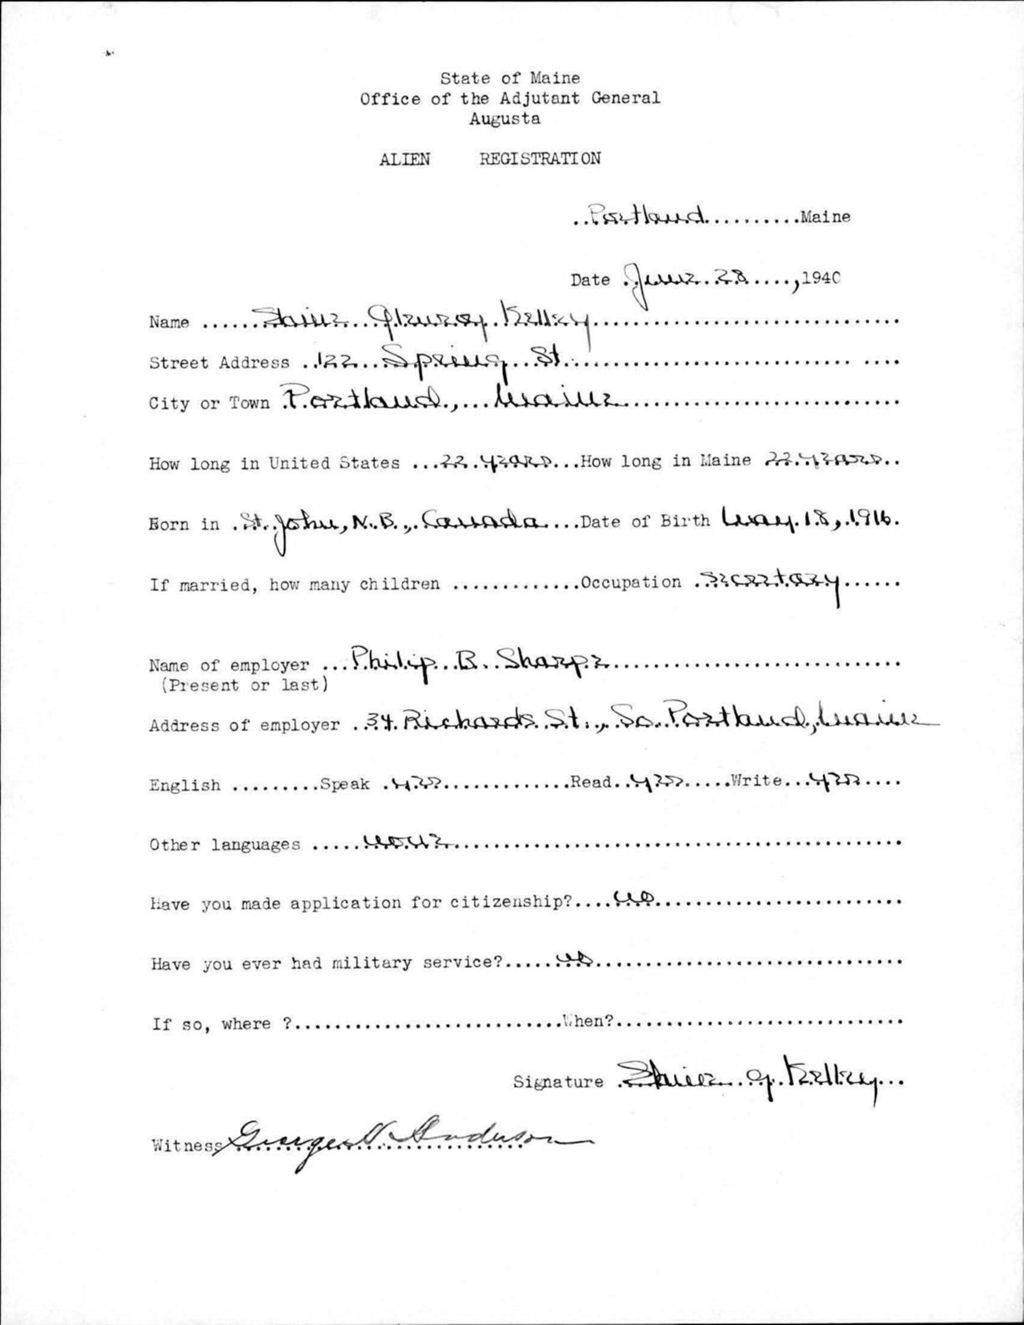 State of Maine
Office of the Adjutant General
Augusta
ALIEN REGISTRATION
..Portland..........Maine
Date .June.28....,1940
Name ...... Kelley..............................
Street Address ..122...Spring..St................................. ....
City or Town .Portland.,...Maine...........................
How long in United States ...22.years...How long in Maine 22.years..
Born in .St.John,N.B.,.Canada....Date of Birth May.18,.1916.
If married, how many children .............Occupation .Secretary......
Name of employer ...Philip..B..Sharpe.............................
(Present or last)
Address of employer .34.Richards.St.,.So.Portland,Maine
English .........Speak .yes.............Read..yes.....Write...yes....
Other languages .....none.............................................
Have you made application for citizenship?....no.........................
Have you ever had military service?.....no...............................
If so, where ?...........................When?.............................
Signature Kelley...
Witness George Anderson